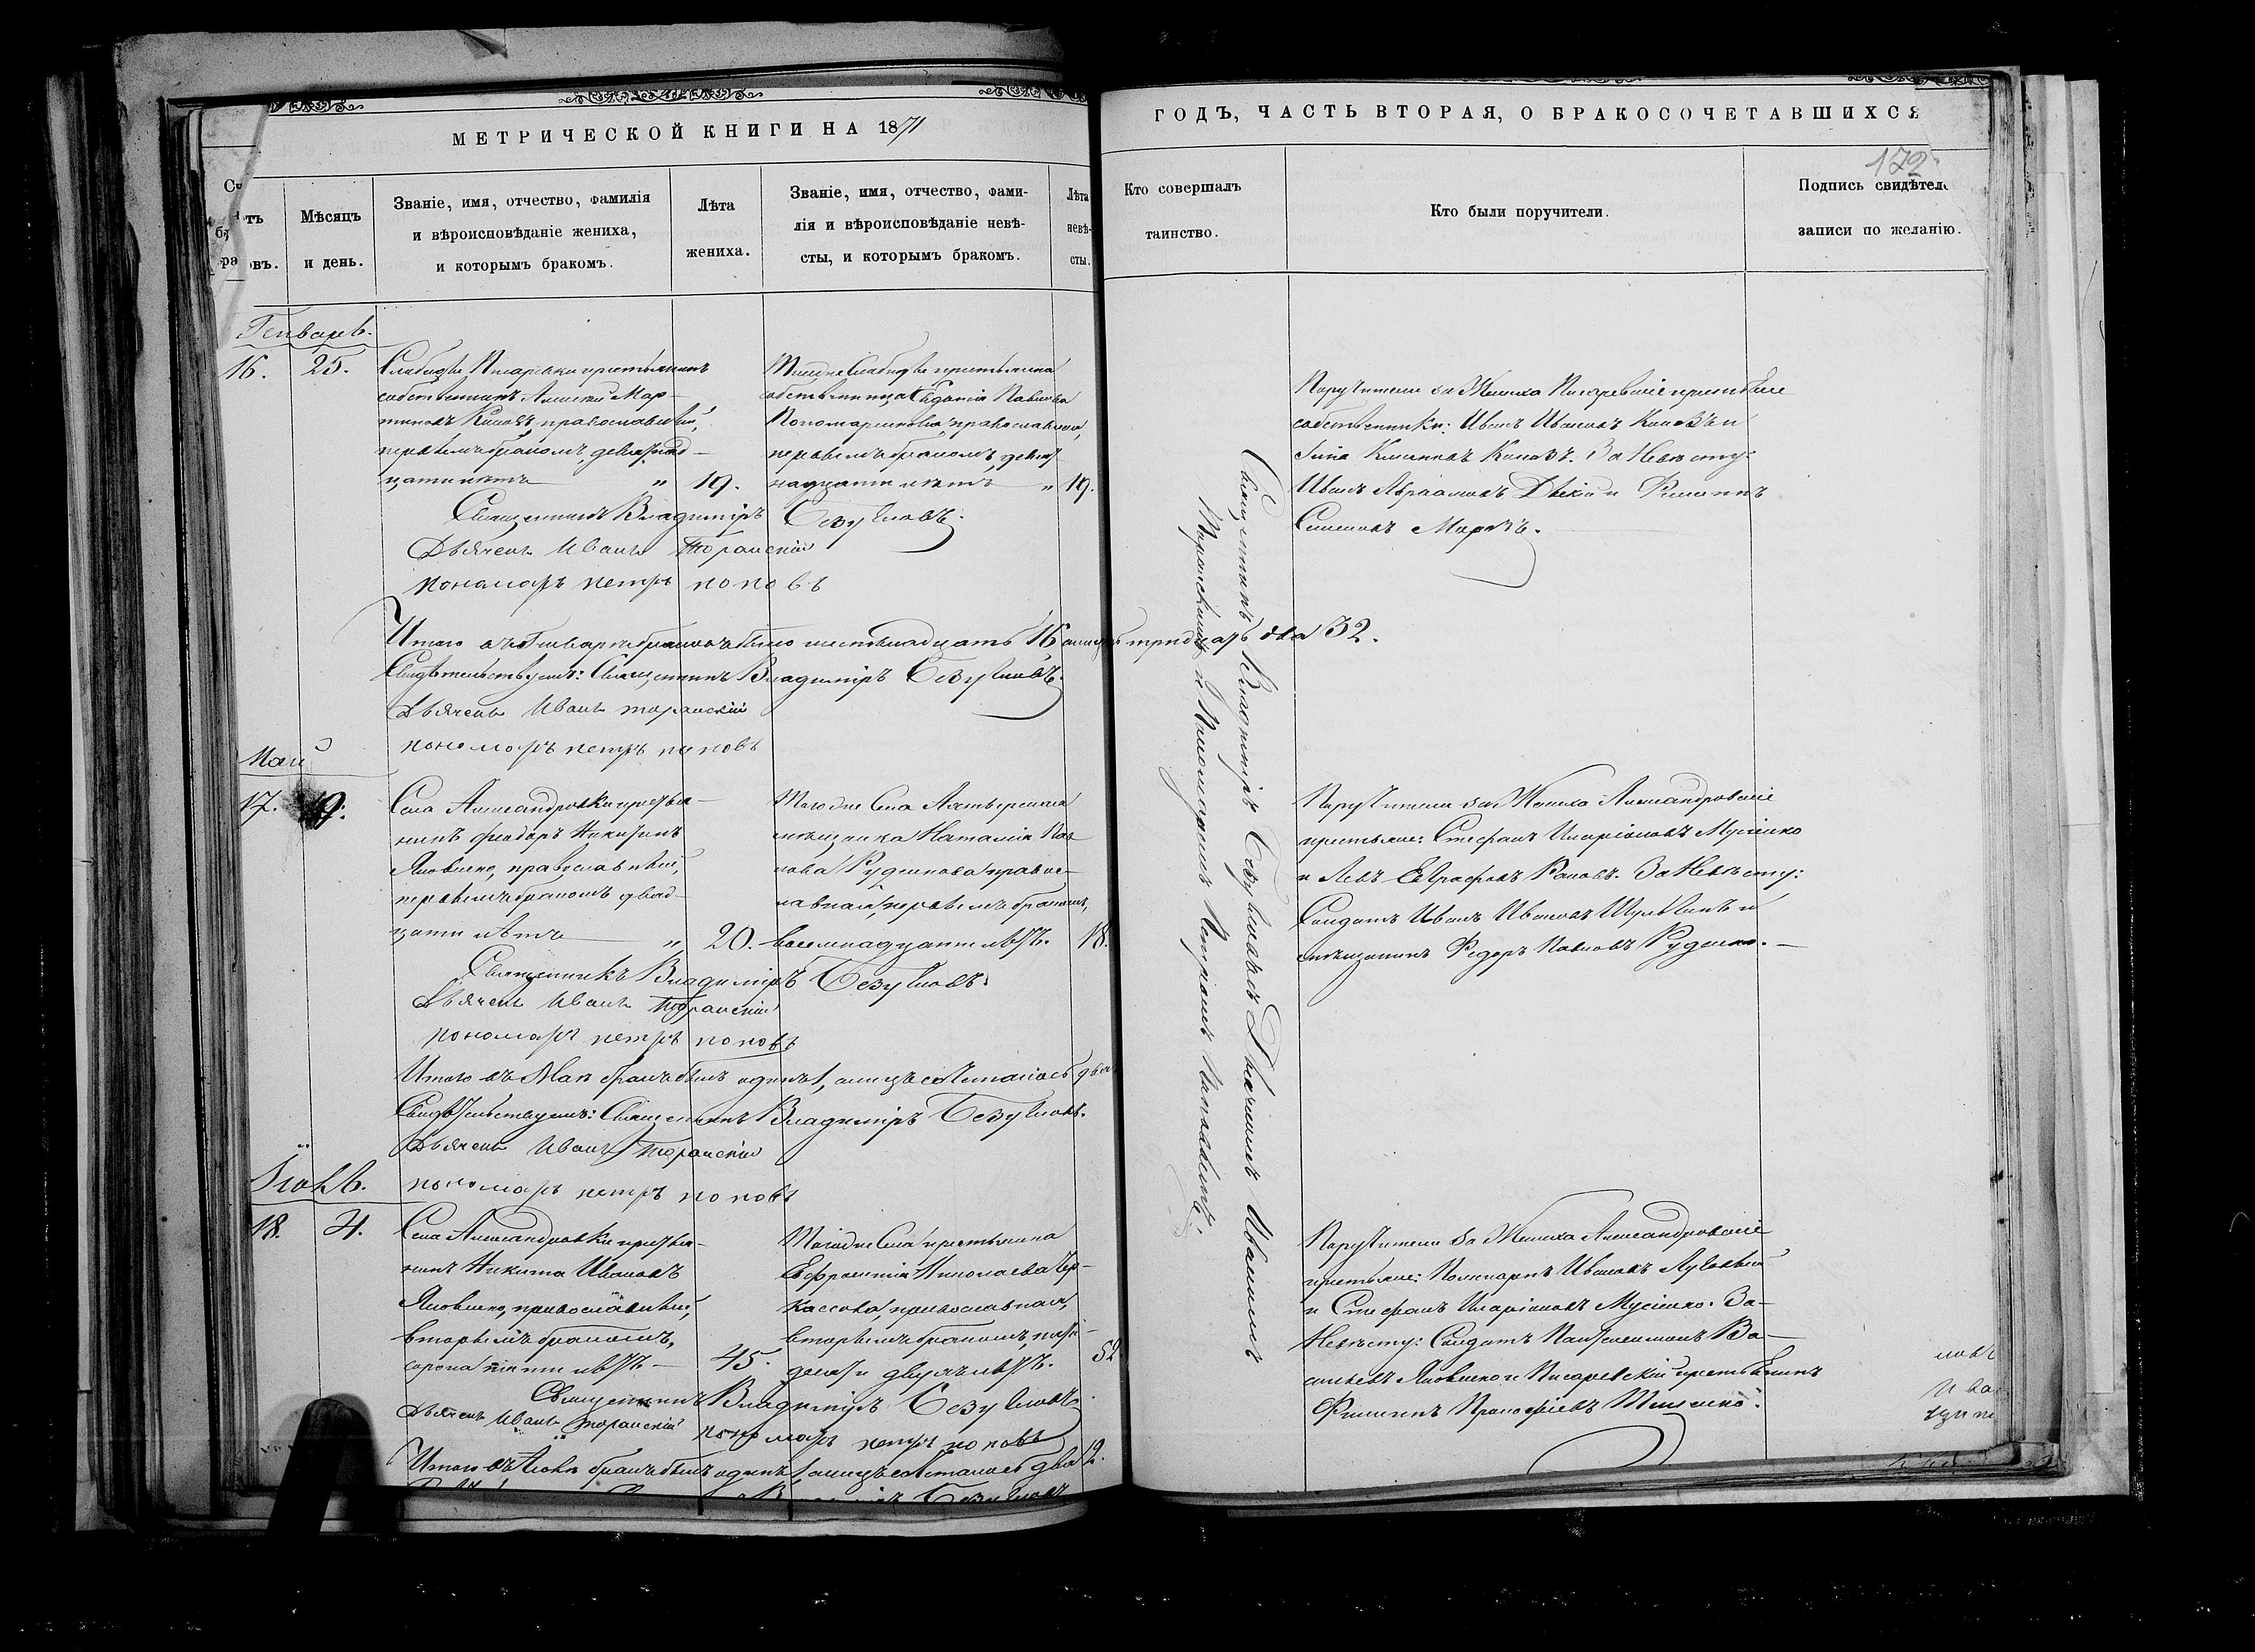 МЕТРИЧЕСКОЙ КНИГИ НА 1871
ГОДЪ, ЧАСТЬ ВТОРАЯ, О БРАКОСОЧЕТАВШИХСЯ
172
Мѣсяцъ и день.
Званіе, имя, отчество, фамилія
и вѣроисповѣданіе жениха,
и которымъ бракомъ.
Лѣта
жениха.
Званіе, имя, отчество, фами-
лія и вѣроисповѣданіе невѣ-
сты, и которымъ бракомъ.
Лѣта
невѣ-
сты.
Кто совершалъ
таинство.
Кто были поручители.
Подпись свидѣтеле
записи по желанію.
Генварь.
16. 25.
Слободы Писаревки крестьянинъ
собственникъ Алексѣй Мар-
тиновъ православный,
первымъ бракомъ, девятнад-
цати лѣтъ " 19.
Тоейже Слободы крестьянка
собственница Павлова
Пономаренкова, православная,
первымъ бракомъ, девят-
надцати лѣтъ " 19.
Священникъ Владиміръ Безуглов.
Дьячекъ Иванъ Торанскій
пономарь петръ поповъ
Поручители за Жениха Писаревскіе крестьяне
собственники: Иванъ Ивановъ и
За Невѣсту:
Иванъ Авраамовъ и Филиппъ
Симеоновъ
Итого въ Генварѣ браковъ было шестьнадцать 16 а лицъ тридцать два 32.
Свидѣтельствуемъ: Священникъ Владиміръ Безуглов.
Дьячекъ Иванъ торанскій
пономарь петръ поповъ
Май
17. 19.
Села Александровки крестья-
нинъ Феодоръ Никитинъ
Яковенко, православный,
первымъ бракомъ двад-
цати лѣтъ " 20.
Тогоже Села
мѣщанка Наталія Пав-
лова Руденкова правос-
лавная, первымъ бракомъ,
восемнадцати лѣтъ. 18.
Священникъ Владиміръ Безуглов.
Дьячекъ Иванъ Торанскій
пономарь петръ поповъ
Поручители за Жениха Александровскіе
крестьяне: Стефанъ Иларіоновъ Мусіенко
и Левъ Евграфовъ За Невѣсту:
Солдатъ Иванъ Ивановъ и
мѣщанинъ Федоръ Павловъ Руденко.
Итого въ Маѣ бракъ былъ одинъ 1, а лицъ сочеталось два
Свидѣтельствуемъ: Священникъ Владиміръ Безуглов.
Дьячекъ Иванъ Торанскій
пономарь петръ поповъ
Іюль.
18. 4.
Села Александровки крестья-
нинъ Никита Ивановъ
Яковенко, православный,
вторымъ бракомъ,
сорока пяти лѣтъ 45.
Тогоже Села крестьянка
Евфросинія Николаева Чер-
кассова, православная,
вторымъ бракомъ, пяти-
десяти двухъ лѣтъ. 52
Священникъ Владиміръ Безуглов
Дьячекъ Иванъ Торанскій пономарь петръ поповъ
Поручители за Жениха Александровскіе
крестьяне: Поликарпъ Ивановъ
и Стефанъ Иларіоновъ Мусіенко. За
Невѣсту: Солдатъ Пантелеимонъ Ва-
сильевъ Яковенко и Писаревскій крестьянинъ
Филиппъ Прокофіевъ
Итого въ Іюлѣ бракъ былъ одинъ 1, а лицъ сочеталось два 2.
Священникъ Владиміръ Безугловъ съ Дьячкомъ Иваномъ
Торанскимъ и Пономаремъ Петромъ Поповымъ.